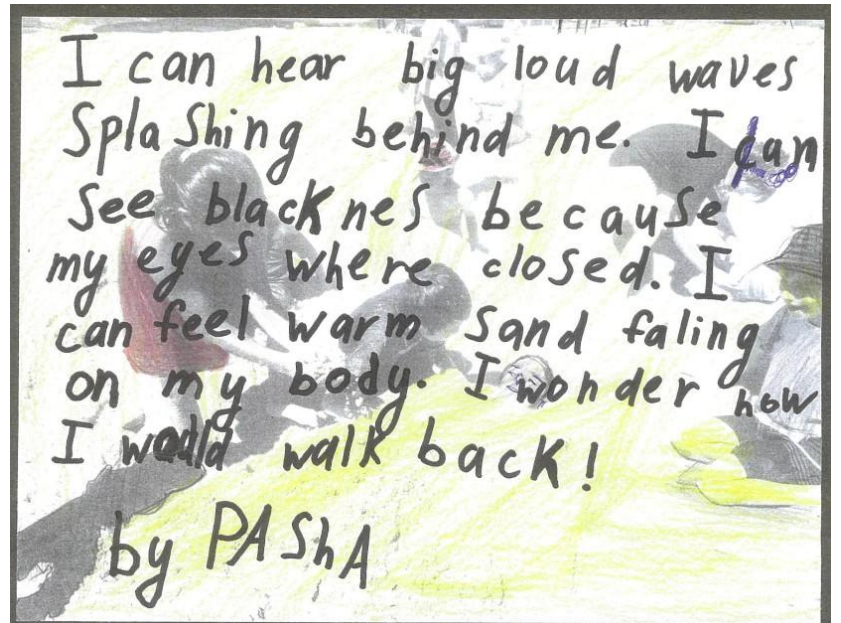 I can hear big loud waves
Splashing behind me. I can
See blacknes because
my eyes where closed. I
can feel warm sand faling
on my body. I wonder how
I would walk back!
by PAShA